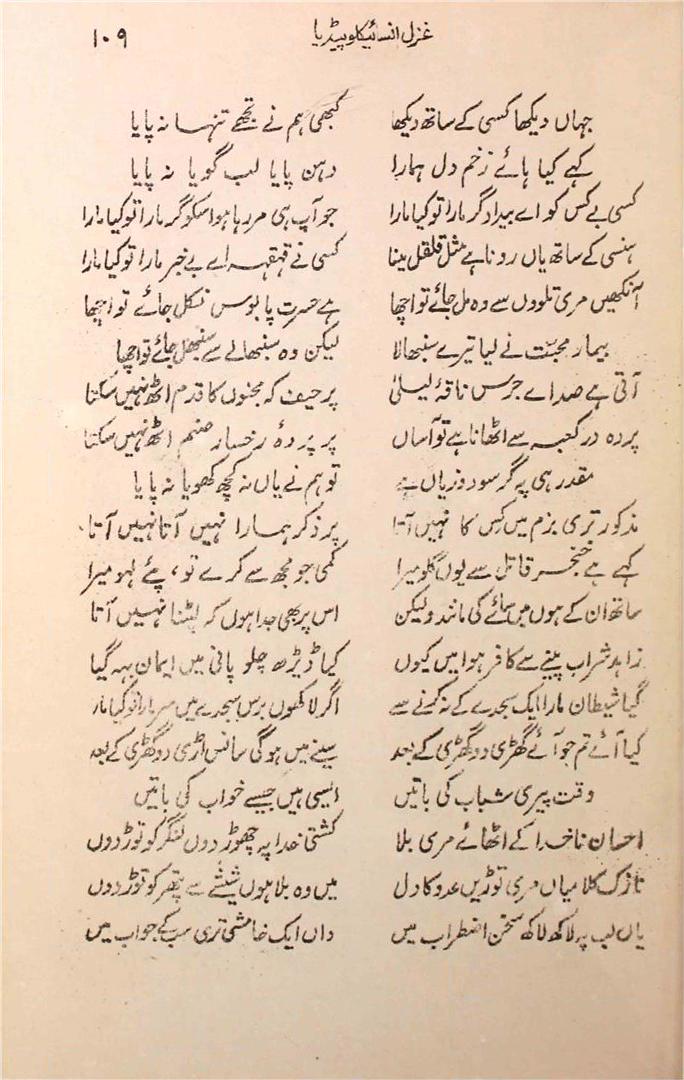 غزل انسائیکلوپیڈیا ۱۰۹
جہاں دیکھا کسی کے ساتھ دیکھا کبھی ہم نے تجھے تنہا نہ پایا
کہے کیا ہائے زخم دل ہمارا دہن پایا لب گویا نہ پایا
کسی بے کس کو اے بیداد گر مارا تو کیا مارا جو آپ ہی مر رہا ہو اسکو گر مارا تو کیا مارا
ہنسی کے ساتھ یاں رونا ہے مثل قلقل مینا کسی نے قہقہہ اے بے خبر مارا تو کیا مارا
آنکھیں مری تلووں سے وہ مل جائے تو اچھا ہے حسرت پابوس نکل جائے تو اچھا
بیمار محبت نے لیا تیرے سنبھالا لیکن وہ سنبھالے سے سنبھل جائے تو اچھا
آتی ہے صدائے جرس ناقۂ لیلیٰ پر حیف کہ مجنوں کا قدم اٹھ نہیں سکتا
پردہ در کعبہ سے اٹھانا ہے تو آساں پر پردۂ رخسار صنم اٹھ نہیں سکتا
مقدر ہی پہ گر سود و زیاں ہے تو ہم نے یاں نہ کچھ کھویا نہ پایا
مذکور تری بزم میں کس کا نہیں آتا پر ذکر ہمارا نہیں آتا نہیں آتا
کہے ہے خنجر قاتل سے یوں گلو میرا کمی جو مجھ سے کرے تو، پئے لہو میرا
ساتھ ان کے ہوں میں سائے کی مانند ولیکن اس پر بھی جدا ہوں کہ لپٹنا نہیں آتا
زاہد شراب پینے سے کافر ہوا میں کیوں کیا ڈیڑھ چلو پانی میں ایمان بہہ گیا
گیا شیطان مارا ایک سجدے کے نہ کرنے سے اگر لاکھوں برس سجدے میں سر مارا تو کیا مارا
کیا آئے تم جو آئے گھڑی دو گھڑی کے بعد سینے میں ہوگی سانس اڑی دو گھڑی کے بعد
وقت پیری شباب کی باتیں ایسی ہیں جیسے خواب کی باتیں
احسان ناخدا کے اٹھائے مری بلا کشتی خدا پہ چھوڑ دوں لنگر کو توڑ دوں
نازک کلامیاں مری توڑیں عدو کا دل میں وہ بلا ہوں شیشے سے پتھر کو توڑ دوں
یاں لب پہ لاکھ لاکھ سخن اضطراب میں واں ایک خامشی تری سب کے جواب میں